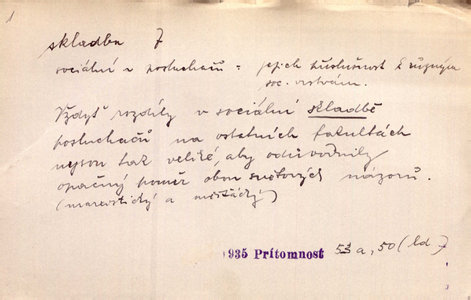 1
skladba 7
sociální s posluchačů = jejich příslušnost k různým
soc. vrstvám.
Vždyť rozdíly v sociální skladbě
posluchačů na ostatních fakultách
nejsou tak veliké, aby odůvodnily
opačný poměr obou světových názorů.
(marxistický a měšťácký)
1935 Přítomnost 53 a, 50 (ld)